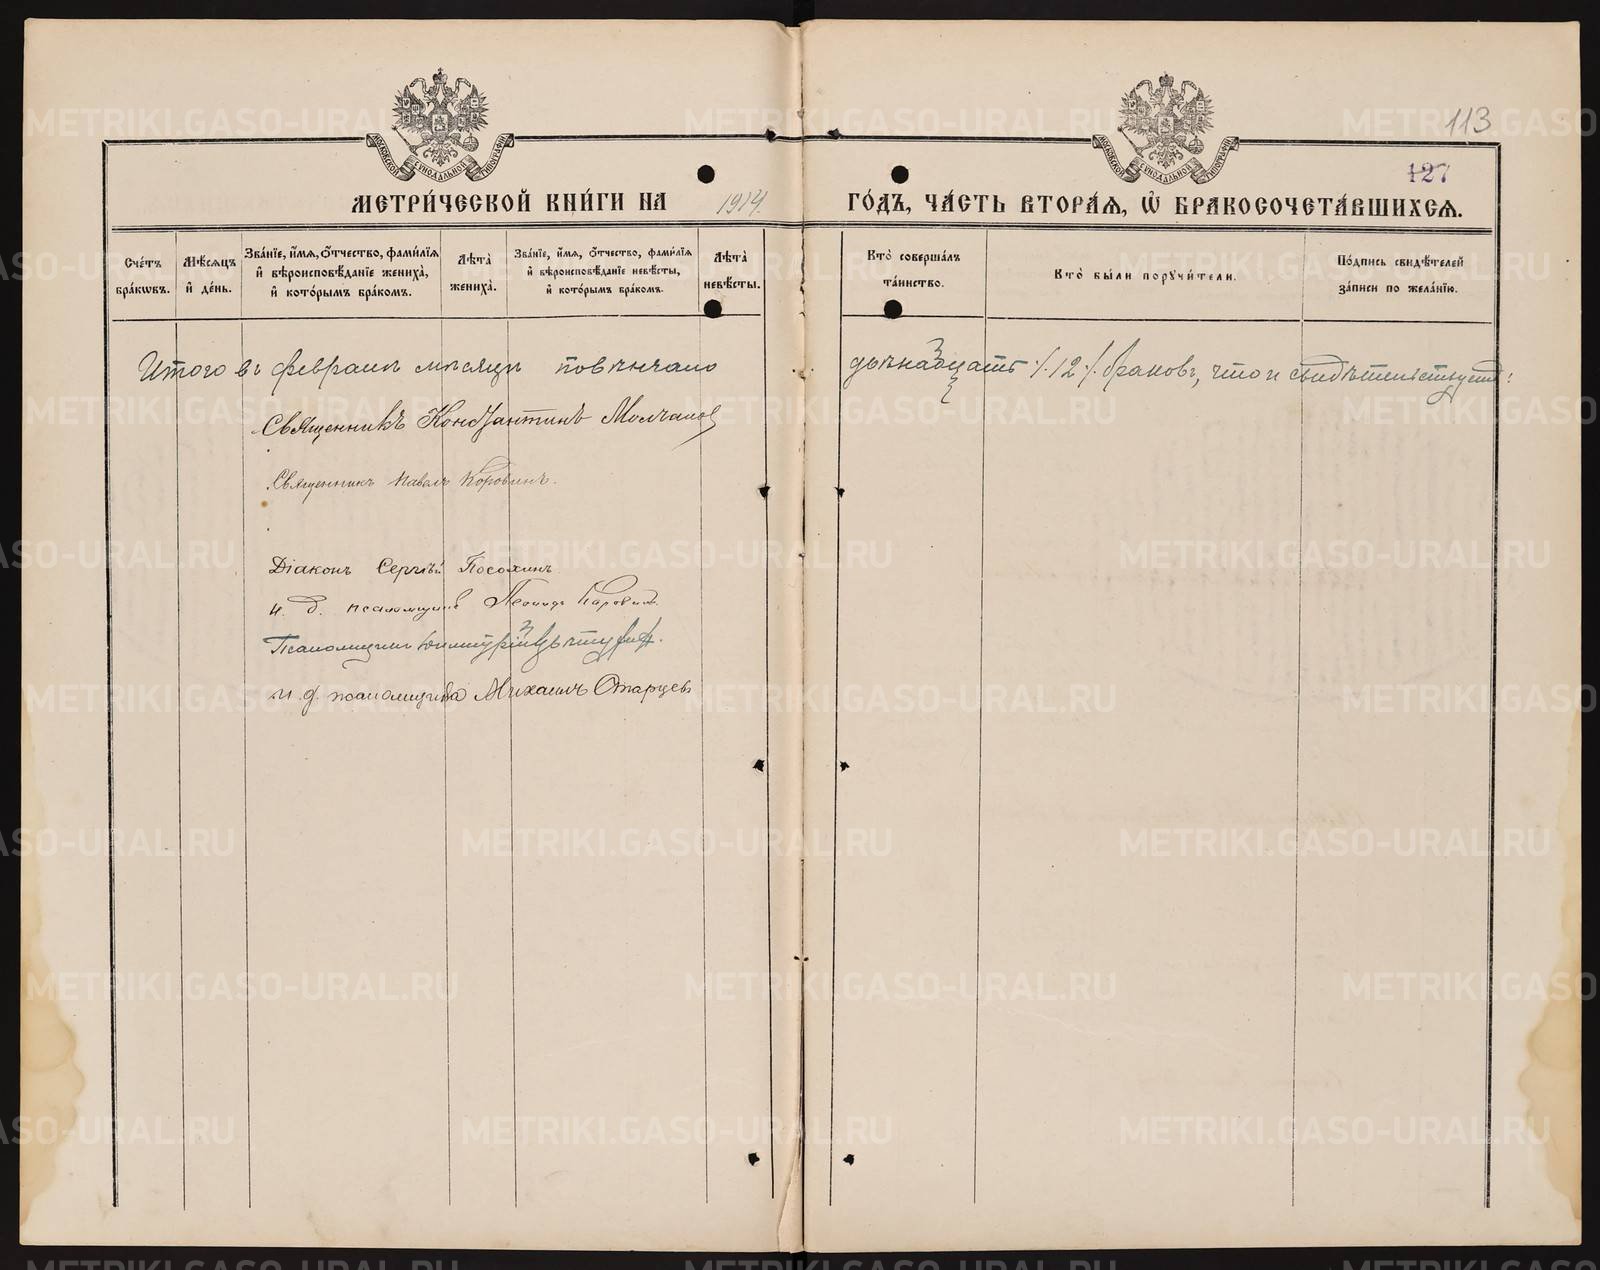 113
127
МОСКОВСКОЙ СѴНОДАЛЬНОЙ ТИПОГРАФІИ
МОСКОВСКОЙ СѴНОДАЛЬНОЙ ТИПОГРАФІИ
МЕТРИ́ЧЕСКОЙ КНИ́ГИ НА 1914. ГО́ДЪ, ЧА́СТЬ ВТОРА́Я, Ѡ҆ БРАКОСОЧЕТА́ВШИХСЯ.
Сче́тъ бра́кѡвъ.
Мѣ́сяцъ и҆ де́нь.
Зва́нїе, и҆́мя, ѻ҆́тчество, фами́лїя и҆ вѣроисповѣ́данїе жениха̀, и҆ кото́рымъ бра́комъ.
Лѣ́та̀ жениха̀.
Зва́нїе, и҆́мя, ѻ҆́тчество, фами́лїя и҆ вѣроисповѣ́данїе невѣ́сты, и҆ кото́рымъ бра́комъ.
Лѣ́та̀ невѣ́сты.
Кто̀ соверша́лъ та́инство.
Кто̀ бы́ли пору́чи́тели.
По́дпись свидѣ́телей за́писи по жела́нїю.
Итого въ февралѣ мѣсяцѣ повѣнчано двѣнадцать ·/.12·/. браковъ, что и свидѣтельствуемъ:
Священникъ Константинъ Молчановъ
Священникъ Павелъ Коровинъ.
Діаконъ Сергѣй Посохинъ
и. д. псаломщика Леонидъ Коровинъ.
Псаломщикъ Димитрій
и. д. псаломщика Михаилъ Старцевъ
METRIKI.GASO-URAL.RU